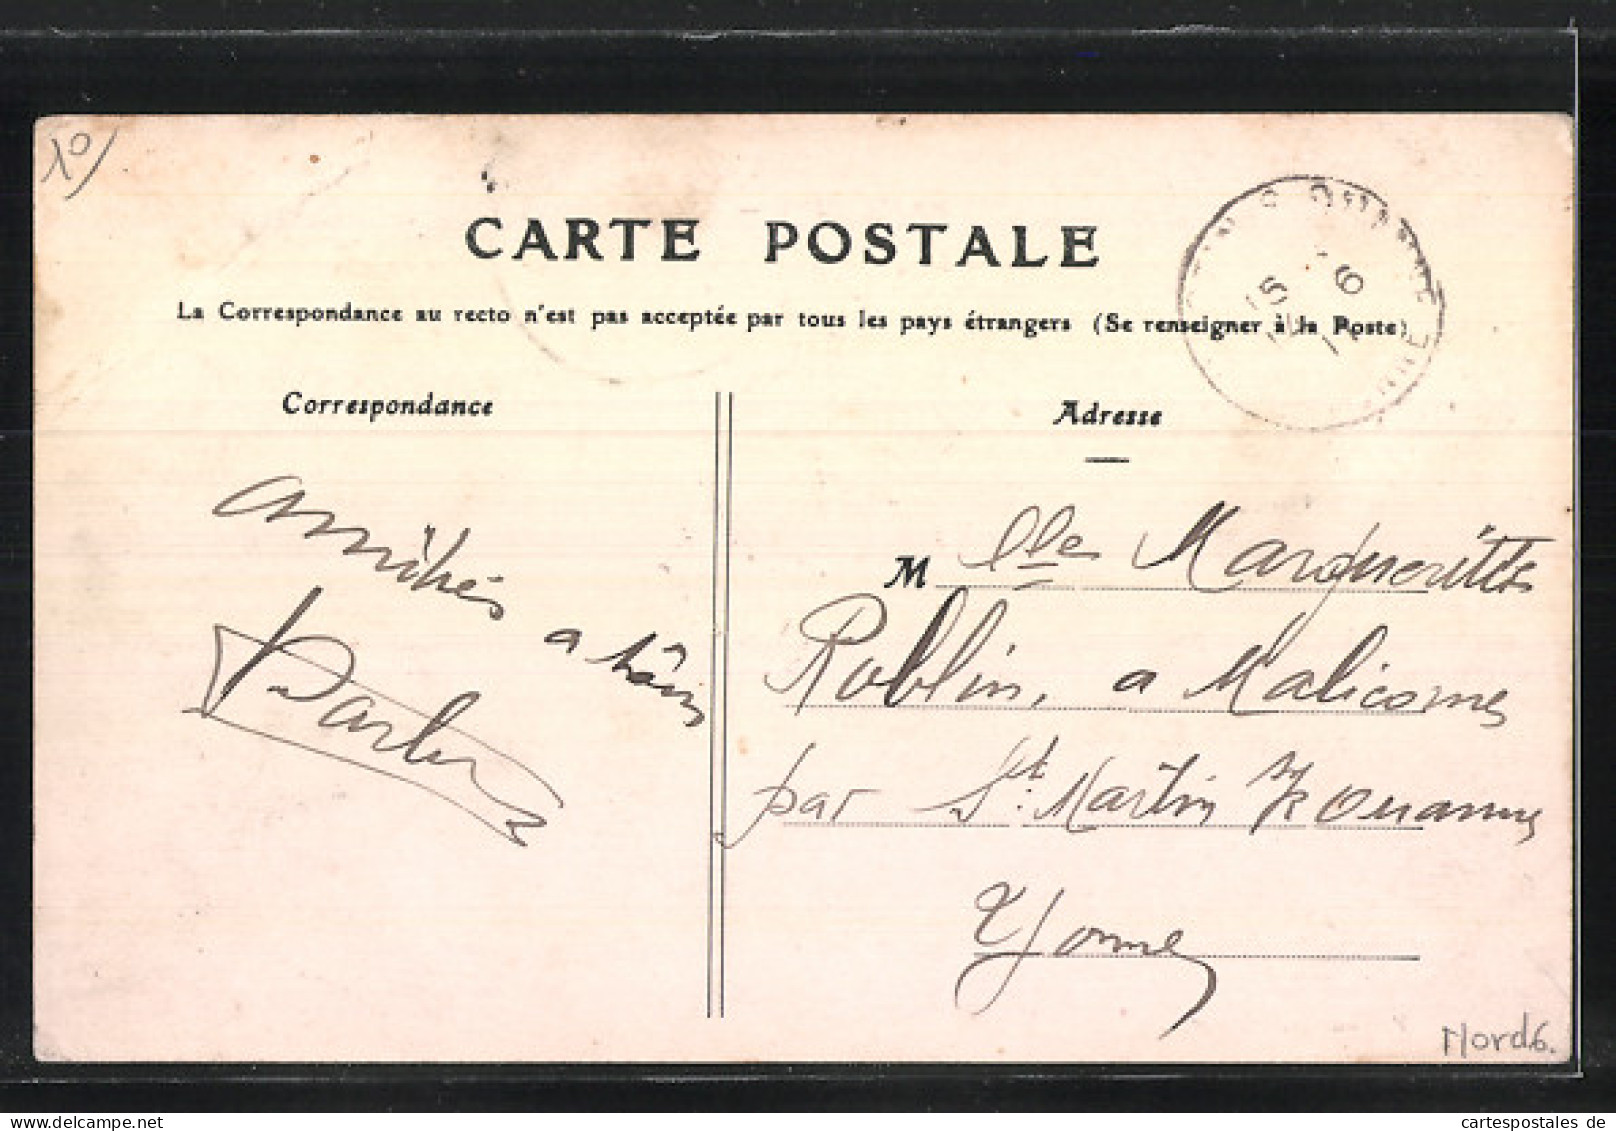 10
CARTE POSTALE
La Correspondance au recto n'est pas acceptée par tous les pays étrangers (Se renseigner à la Poste)
Correspondance
Adresse
amitiés
a tous
M lle Margueritte
Roblin, a Malicorne
par St. Martin s/ Ouanne
Yonne
15 6
Nord 6.
cartespostales de